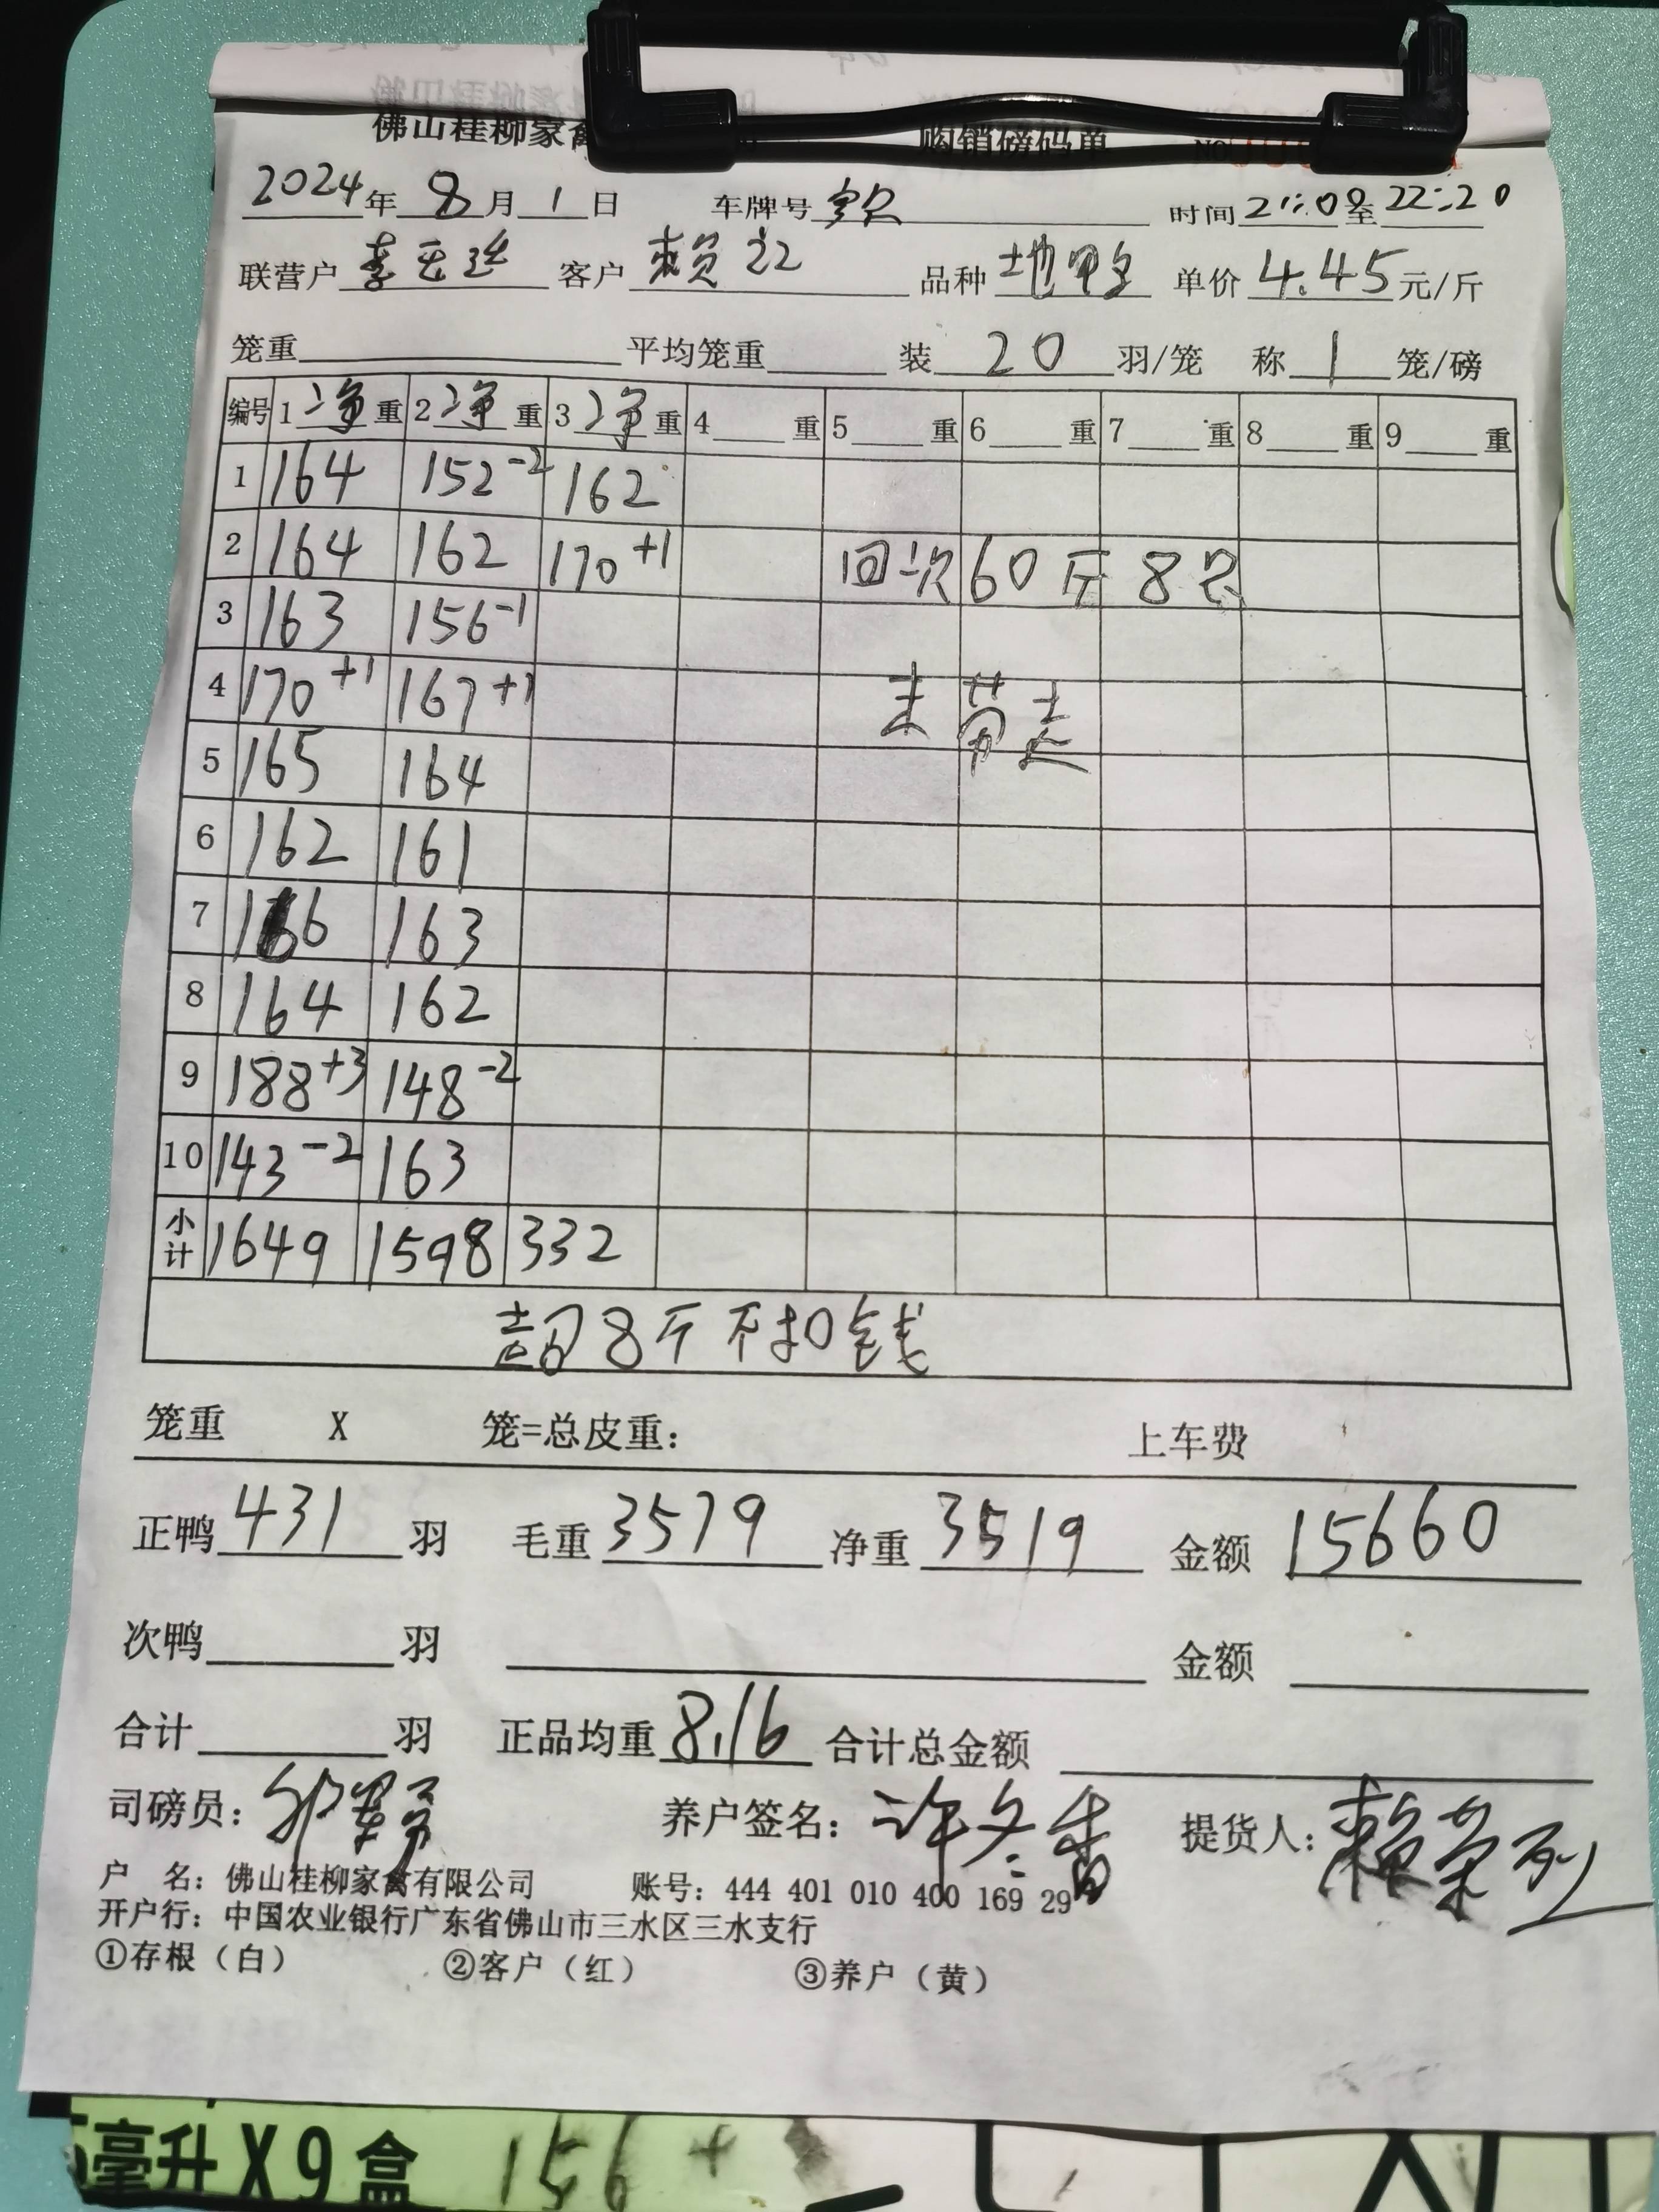 佛山桂柳家禽 购销磅码单 NO
2024年 8月 1日 车牌号 时间 21:08至22:20
联营户 客户 赖 品种 土地鸭 单价 4.45元/斤
笼重 平均笼重 装 20 羽/笼 称 1 笼/磅
编号 1 净 重 2 净 重 3 净 重 4 重 5 重 6 重 7 重 8 重 9 重
1 164 152-2 162
2 164 162 170+1 回次60斤8只
3 163 156-1
4 170+1 167+1 未带走
5 165 164
6 162 161
7 166 163
8 164 162
9 188+3 148-2
10 143-2 163
小计 1649 1598 332
超8斤不扣钱
笼重 X 笼=总皮重: 上车费
正鸭 431 羽 毛重 3579 净重 3519 金额 15660
次鸭 羽 金额
合计 羽 正品均重 8.16 合计总金额
司磅员: 养户签名: 许冬香 提货人: 赖荣烈
户 名: 佛山桂柳家禽有限公司 账号: 444 401 010 400 169 29
开户行: 中国农业银行广东省佛山市三水区三水支行
①存根(白) ②客户(红) ③养户(黄)
毫升X9盒 156+